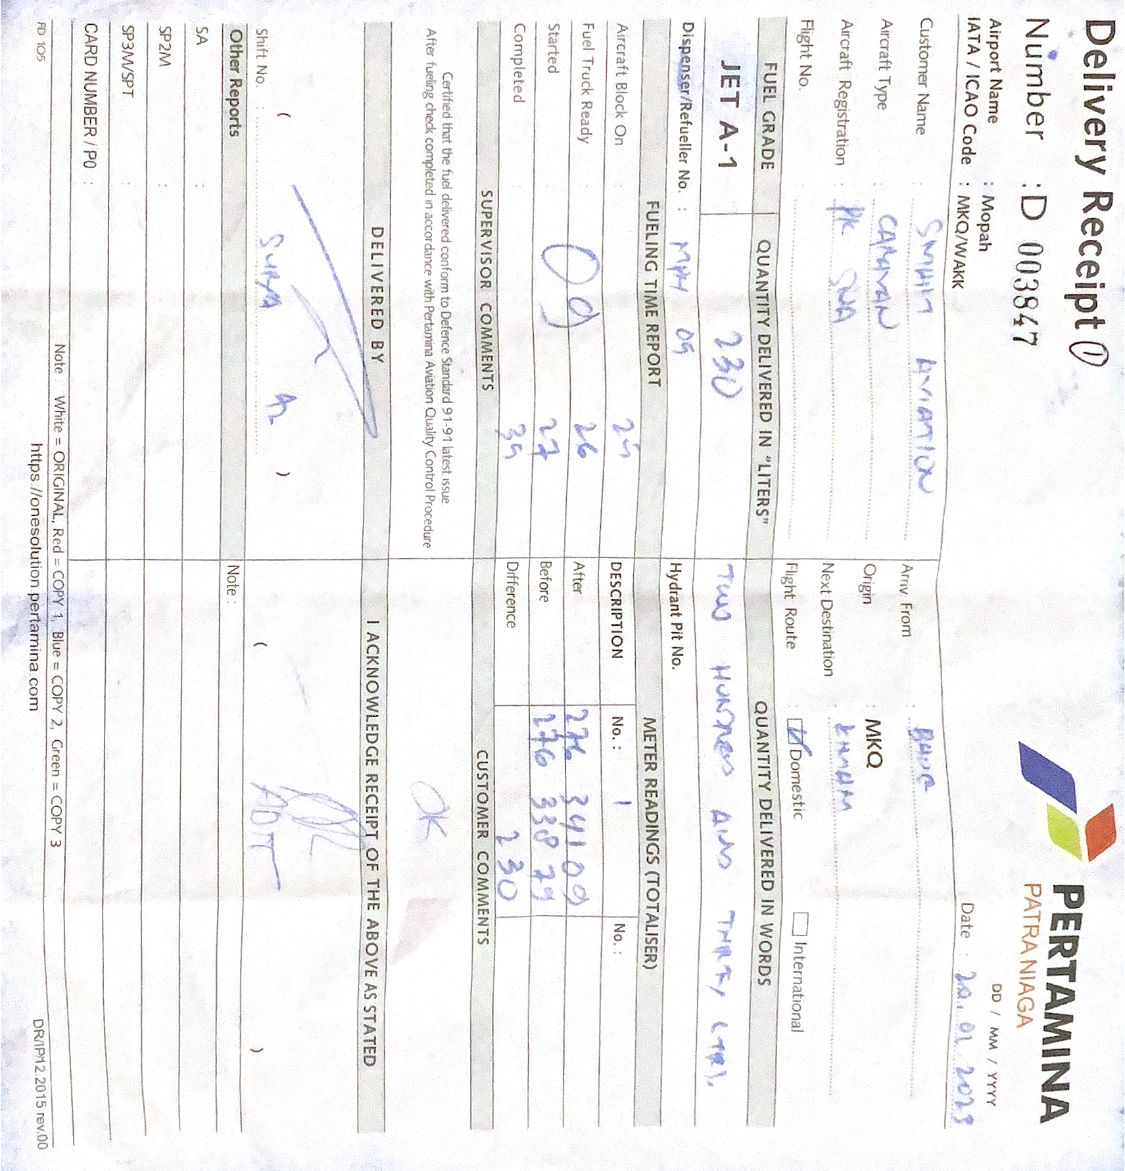 Delivery Receipt 1
Number : D 003847
PERTAMINA
PATRA NIAGA
DD / MM / YYYY
Airport Name : Mopah
IATA / ICAO Code : MKQ/WAKK
Date :
Customer Name : SMAM AVIATION
Arriv. From :
Aircraft Type : CARAVAN
Origin : MKQ
Aircraft Registration : PK SNA
Next Destination :
Flight No. :
Flight Route : Domestic International
FUEL GRADE QUANTITY DELIVERED IN "LITERS" QUANTITY DELIVERED IN WORDS
JET A-1 230 TWO HUNDRED AND
Dispenser/Refueller No. : 09 Hydrant Pit No.
FUELING TIME REPORT METER READINGS (TOTALISER)
Aircraft Block On : DESCRIPTION No. : 1 No. :
Fuel Truck Ready : 26 After 276 34109
Started : 09 27 Before 276 33879
Completed : 39 Difference 230
SUPERVISOR COMMENTS CUSTOMER COMMENTS
Certified that the fuel delivered conform to Defence Standard 91-91 latest issue.
After fueling check completed in accordance with Pertamina Aviation Quality Control Procedure
OK
DELIVERED BY I ACKNOWLEDGE RECEIPT OF THE ABOVE AS STATED
Shift No. : ( ) ( )
Other Reports Note :
SA :
SP2M :
SP3M/SPT :
CARD NUMBER / PO :
Note : White = ORIGINAL, Red = COPY 1, Blue = COPY 2, Green = COPY 3
https://onesolution.pertamina.com
FD 105
DR/IP/12.2015 rev.00